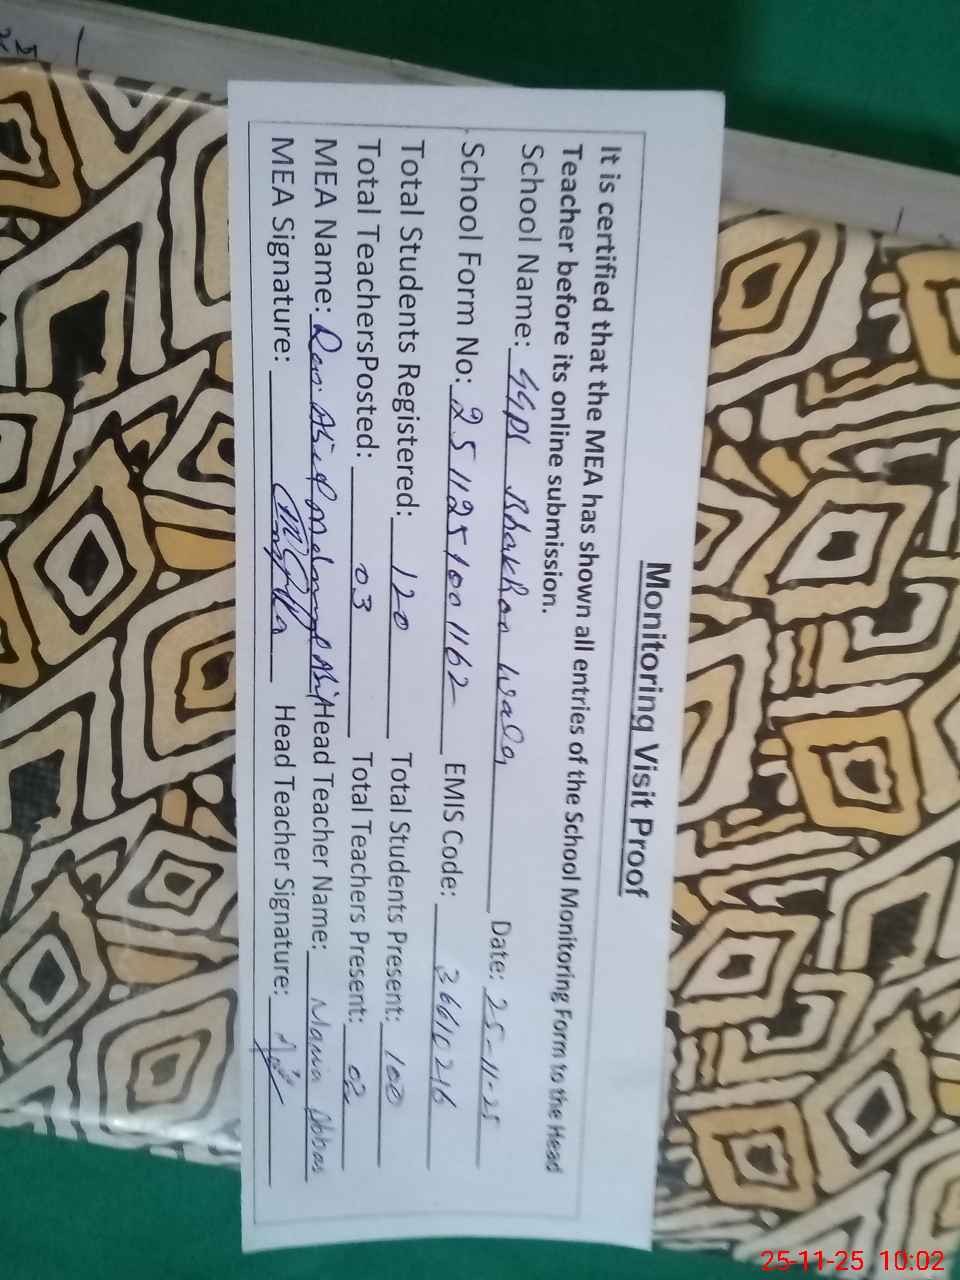 Monitoring Visit Proof
It is certified that the MEA has shown all entries of the School Monitoring Form to the Head
Teacher before its online submission.
School Name: GGPS Bhakhan wala Date: 25-11-25
School Form No: 2511251001162 EMIS Code: 36610216
Total Students Registered: 120 Total Students Present: 100
Total TeachersPosted: 03 Total Teachers Present: 02
MEA Name: Head Teacher Name: Abbas
MEA Signature: Head Teacher Signature:
25-11-25 10:02